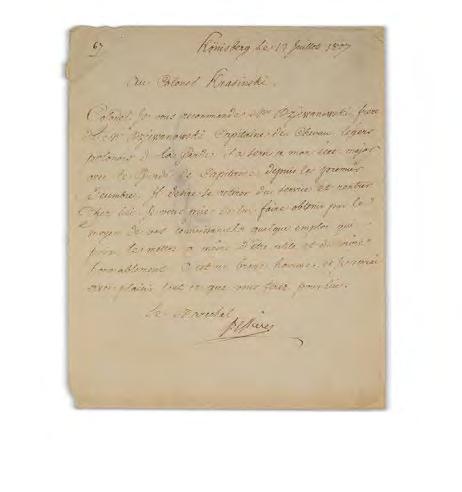 67
Königsberg Le 13 Juillet 1807
au Colonel Krasinski.
Colonel, Je vous recommande Mr Dziewanowski, frere
de Mr Dziewanowski Capitaine de Chevau legers
polonois de la Garde. il a servi a mon état major
avec le Grade de Capitaine, depuis les premier
décembre. Il desire se retirer du service et rentrer
chez lui. Je vous prie de lui faire obtenir par le
moyen de vos connaissances quelque emploi qui
le mettre a même d'être utile et de vivre
honorablement. C'est un brave homme, et je verrai
avec plaisir tout ce que vous ferez pour lui.
Le Marechal
Bessières